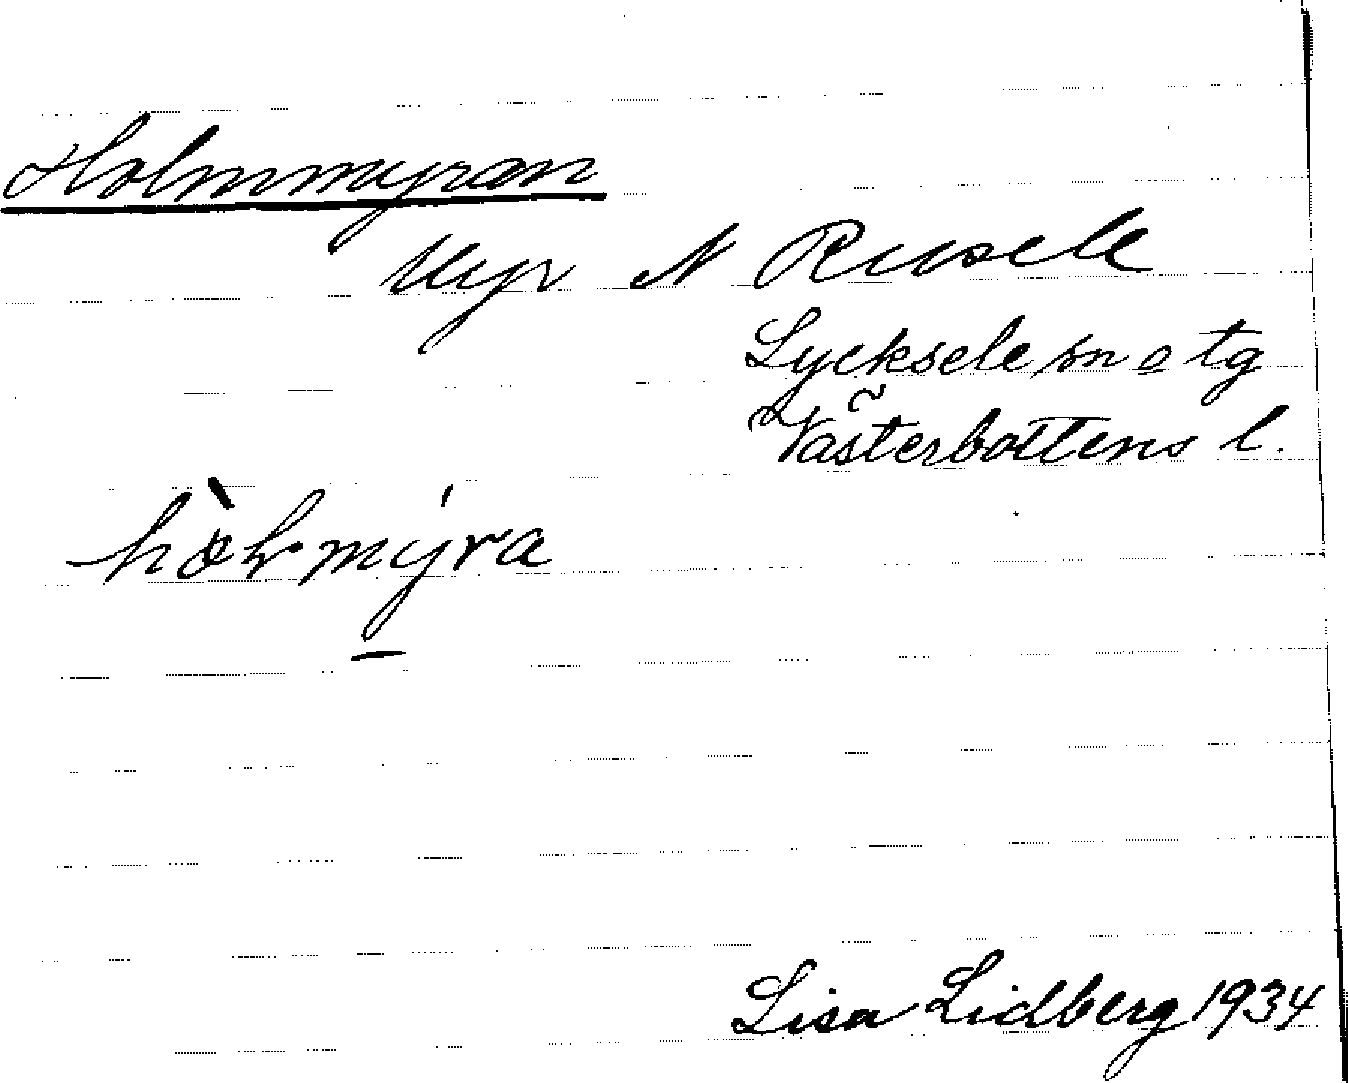 Holmmyran
Myr N Rusele
Lycksele sn o tg
Västerbottens l.
Lisa Lidberg 1934